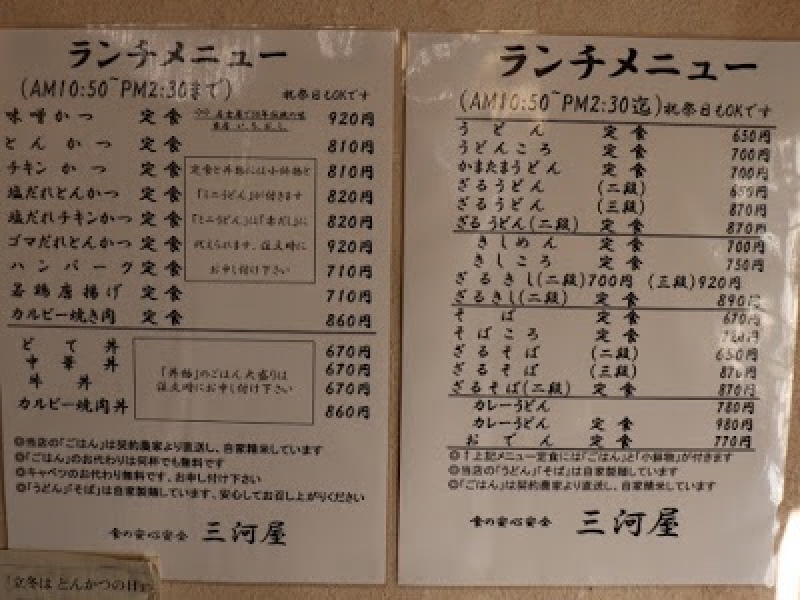 ランチメニュー
(AM10:50~PM2:30まで) 祝祭日もOKです
味噌かつ 定食 920円
とんかつ 定食 810円
チキンかつ 定食 810円
塩だれとんかつ 定食 820円
塩だれチキンかつ 定食 820円
ゴマだれとんかつ 定食 920円
ハンバーグ 定食 710円
若鶏唐揚げ 定食 710円
カルビー焼き肉 定食 860円
定食と丼物には小鉢物と
「ミニうどん」が付きます
「ミニうどん」は「赤だし」に
代えられます、注文時に
お申し付け下さい
どて丼 670円
中華丼 670円
丼 670円
カルビー焼肉丼 860円
「丼物」のごはん大盛りは
注文時にお申し付け下さい
◎当店の「ごはん」は契約農家より直送し、自家精米しています
◎「ごはん」のお代わりは何杯でも無料です
◎キャベツのお代わり無料です、お申し付け下さい
◎「うどん」「そば」は自家製麺しています、安心してお召し上がりください
食の安心安全 三河屋
「立冬は とんかつの日」
ランチメニュー
(AM10:50~PM2:30迄) 祝祭日もOKです
うどん 定食 650円
うどんころ 定食 700円
かまたまうどん 定食 700円
ざるうどん (二段)
ざるうどん (三段) 870円
ざるうどん(二段) 定食 870円
きしめん 定食 700円
きしころ 定食 750円
ざるきし(二段)700円 (三段)920円
ざるきし(二段) 定食 890円
そば 定食 670円
そばころ 定食
ざるそば (二段) 650円
ざるそば (三段) 870円
ざるそば(二段) 定食 870円
カレーうどん 780円
カレーうどん 定食 980円
おでん 定食 770円
◎↑上記メニュー定食には「ごはん」と「小鉢物」が付きます
◎当店の「うどん」「そば」は自家製麺しています
◎「ごはん」は契約農家より直送し、自家精米しています
食の安心安全 三河屋